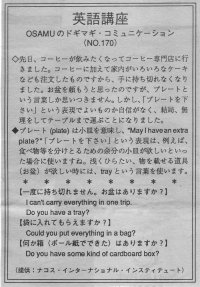 英語講座
OSAMUのドギマギ・コミュニケーション
(NO.170)
◇先日、コーヒーが飲みたくなってコーヒー専門店に行
きました。コーヒーに加えて家内がいろいろなケーキ
なども注文したものですから、手に持ち切れなくなり
ました。お盆を頼もうと思ったのですが、プレートと
いう言葉しか思いつきません。しかし、「プレートを下
さい」という表現でよいものか自信がなく、結局、無
理をしてテーブルまで運ぶことになりました。
◆プレート(plate)は小皿を意味し、"May I have an extra
plate?"「プレートを下さい」という表現は、例えば、
食べ物等を分けとるための余分の小皿が欲しいといっ
た場合に使いますね。浅くひらたい、物を載せる道具
(お盆)が欲しい時には、trayという言葉を使います。
* * * * * * * *
【一度に持ち切れません。お盆はありますか?】
I can't carry everything in one trip.
Do you have a tray?
【袋に入れてもらえますか?】
Could you put everything in a bag?
【何か箱(ボール紙でできた)はありますか?】
Do you have some kind of cardboard box?
(提供:ナコス・インターナショナル・インスティテュート)